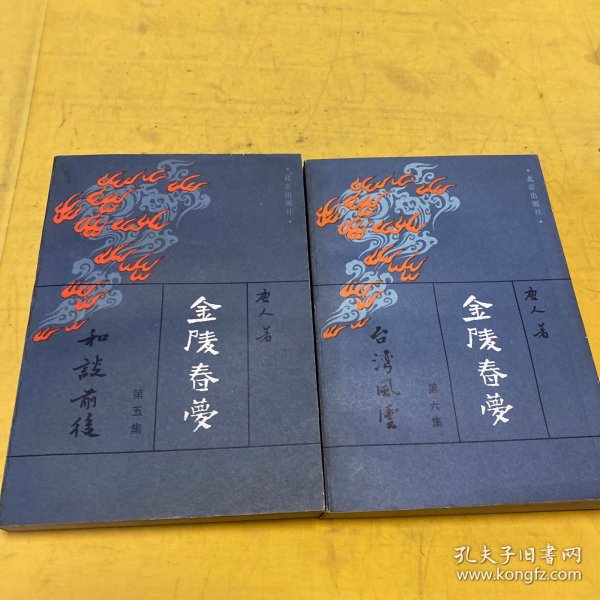 ·北京出版社·
唐人著
金陵春夢
第五集
和談前後
·北京出版社·
唐人著
金陵春夢
第六集
台湾風雲
孔夫子旧书网
www.kongfz.com